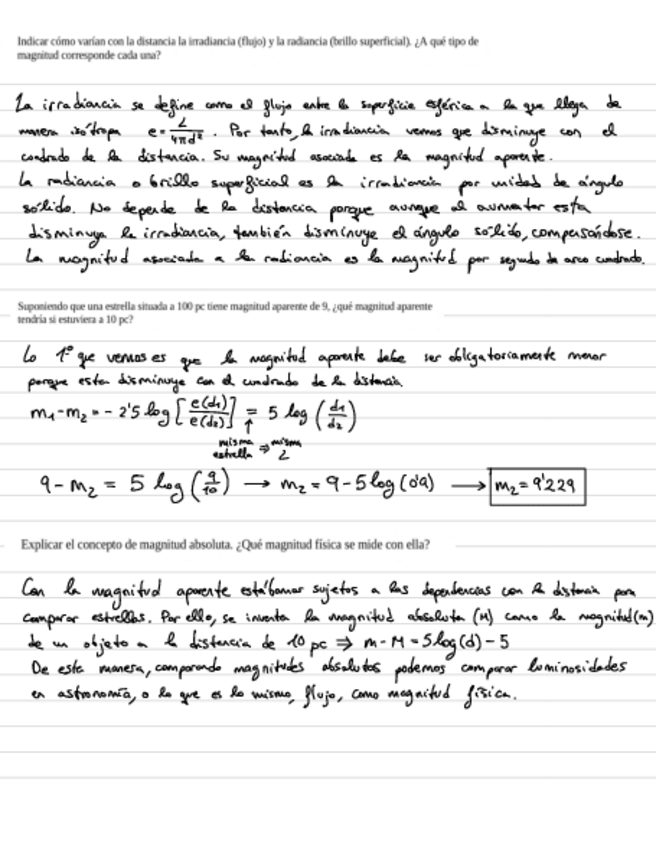 Indicar cómo varían con la distancia la irradiancia (flujo) y la radiancia (brillo superficial). ¿A qué tipo de
magnitud corresponde cada una?
La irradiancia se define como el flujo entre la superficie esférica a la que llega de
manera isótropa e = L/4πd². Por tanto, la irradiancia vemos que disminuye con el
cuadrado de la distancia. Su magnitud asociada es la magnitud aparente.
La radiancia o brillo superficial es la irradiancia por unidad de ángulo
sólido. No depende de la distancia porque aunque al aumentar esta
disminuya la irradiancia, también disminuye el ángulo sólido, compensándose.
La magnitud asociada a la radiancia es la magnitud por segundo de arco cuadrado.
Suponiendo que una estrella situada a 100 pc tiene magnitud aparente de 9, ¿qué magnitud aparente
tendría si estuviera a 10 pc?
Lo 1º que vemos es que la magnitud aparente debe ser obligatoriamente menor
porque esta disminuye con el cuadrado de la distancia.
m₁-m₂ = - 2'5 log [e(d₁)/e(d₂)] = 5 log (d₁/d₂)
misma estrella ⇒ misma L
9 - m₂ = 5 log (9/10) → m₂ = 9 - 5 log (0'9) → m₂ = 9'229
Explicar el concepto de magnitud absoluta. ¿Qué magnitud física se mide con ella?
Con la magnitud aparente estábamos sujetos a las dependencias con la distancia para
comparar estrellas. Por ello, se inventa la magnitud absoluta (M) como la magnitud (m)
de un objeto a la distancia de 10 pc ⇒ m - M = 5 log(d) - 5
De esta manera, comparando magnitudes absolutas podemos comparar luminosidades
en astronomía, o lo que es lo mismo, flujo, como magnitud física.